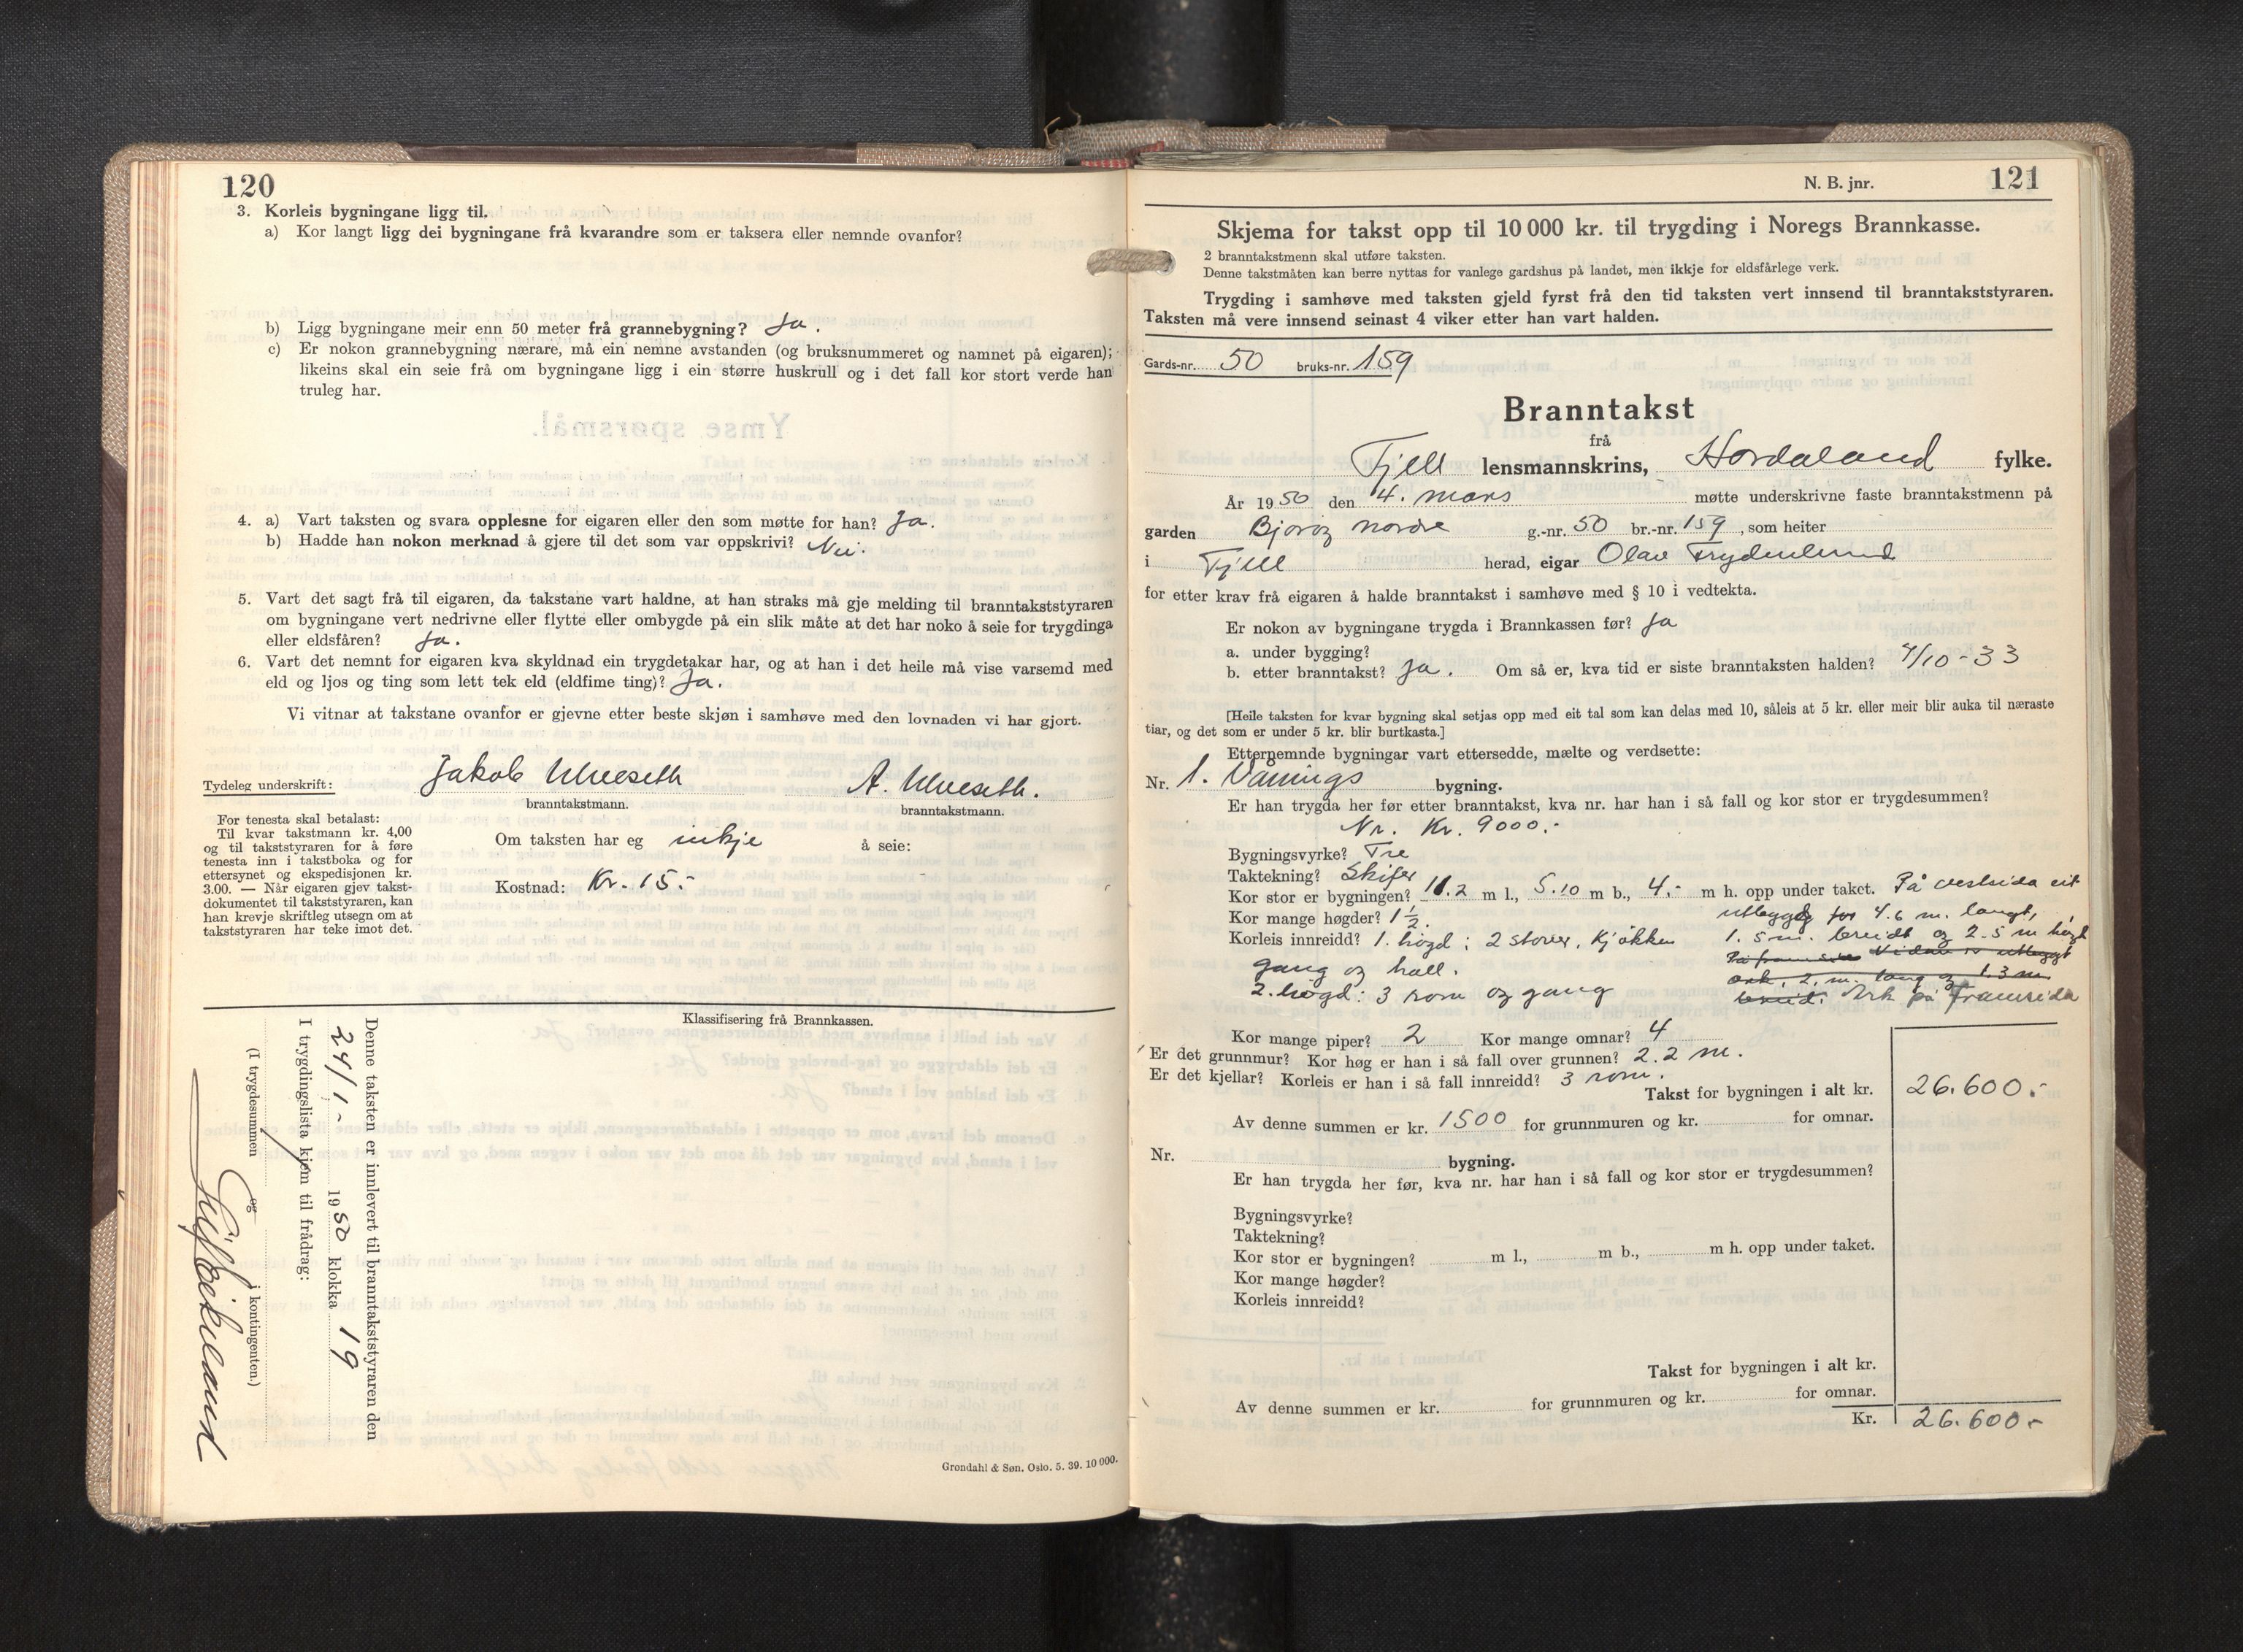 120
3. Korleis bygningane ligg til.
a) Kor langt ligg dei bygningane frå kvarandre som er taksera eller nemnde ovanfor?
b) Ligg bygningane meir enn 50 meter frå grannebygning? Ja.
c) Er nokon grannebygning nærare, må ein nemne avstanden (og bruksnummeret og namnet på eigaren);
likeins skal ein seie frå om bygningane ligg i ein større huskrull og i det fall kor stort verde han
truleg har.
4. a) Vart taksten og svara opplesne for eigaren eller den som møtte for han? Ja.
b) Hadde han nokon merknad å gjere til det som var oppskrivi? Nei.
5. Vart det sagt frå til eigaren, da takstane vart haldne, at han straks må gje melding til branntakststyraren
om bygningane vert nedrivne eller flytte eller ombygde på ein slik måte at det har noko å seie for trygdinga
eller eldsfåren? Ja.
6. Vart det nemnt for eigaren kva skyldnad ein trygdetakar har, og at han i det heile må vise varsemd med
eld og ljos og ting som lett tek eld (eldfime ting)? Ja.
Vi vitnar at takstane ovanfor er gjevne etter beste skjøn i samhøve med den lovnaden vi har gjort.
Tydeleg underskrift: Jakob Ulveseth A. Ulveseth.
branntakstmann. branntakstmann.
For tenesta skal betalast:
Til kvar takstmann kr. 4,00
og til takststyraren for å føre
tenesta inn i takstboka og for
ettersynet og ekspedisjonen kr.
3.00. — Når eigaren gjev takst-
dokumentet til takststyraren, kan
han krevje skriftleg utsegn om at
takststyraren har teke imot det.
Om taksten har eg inkje å seie:
Kostnad: Kr. 15.-
Klassifisering frå Brannkassen.
Denne taksten er innlevert til branntakststyraren den
24/1- 1950 klokka 19
I trygdingslista kjem til frådrag:
(I trygdesummen og i kontingenten.)
Grøndahl & Søn. Oslo. 5. 39. 10 000.
N. B. jnr. 121
Skjema for takst opp til 10 000 kr. til trygding i Noregs Brannkasse.
2 branntakstmenn skal utføre taksten.
Denne takstmåten kan berre nyttas for vanlege gardshus på landet, men ikkje for eldsfårlege verk.
Trygding i samhøve med taksten gjeld fyrst frå den tid taksten vert innsend til branntakststyraren.
Taksten må vere innsend seinast 4 viker etter han vart halden.
Gards-nr. 50 bruks-nr. 159
Branntakst
frå
Fjell lensmannskrins, Hordaland fylke.
År 1950 den 4. mars møtte underskrivne faste branntakstmenn på
garden Bjorøy nordre g.-nr. 50 br.-nr. 159, som heiter
i Fjell herad, eigar Olav Frydenlund
for etter krav frå eigaren å halde branntakst i samhøve med § 10 i vedtekta.
Er nokon av bygningane trygda i Brannkassen før? Ja
a. under bygging?
b. etter branntakst? Ja. Om så er, kva tid er siste branntaksten halden? 7/10-33
[Heile taksten for kvar bygning skal setjas opp med eit tal som kan delas med 10, såleis at 5 kr. eller meir blir auka til næraste
tiar, og det som er under 5 kr. blir burtkasta.]
Etternemnde bygningar vart ettersedde, mælte og verdsette:
Nr. 1. Vånings bygning.
Er han trygda her før etter branntakst, kva nr. har han i så fall og kor stor er trygdesummen?
Nr. Kr. 9000.-
Bygningsvyrke? Tre
Taktekning? Skifer
Kor stor er bygningen? 11.2 m l., 5.10 m b., 4,- m h. opp under taket. På vestsida eit
Kor mange høgder? 1 1/2. utbygg for 4.6 m. langt,
Korleis innreidd? 1. høgd: 2 stover, kjøkken 1.5 m. breidt og 2.5 m høgt
gang og hall. På framsida
ark, 2. m. lang og 1.3 m
2. høgd: 3 rom og gang breid. Ark på framsida
Kor mange piper? 2 Kor mange omnar? 4
Er det grunnmur? Kor høg er han i så fall over grunnen? 2.2 m.
Er det kjellar? Korleis er han i så fall innreidd? 3 rom.
Takst for bygningen i alt kr. 26.600.-
Av denne summen er kr. 1500 for grunnmuren og kr. for omnar.
Nr. bygning.
Er han trygda her før, kva nr. har han i så fall og kor stor er trygdesummen?
Bygningsvyrke?
Taktekning?
Kor stor er bygningen? m l., m b., m h. opp under taket.
Kor mange høgder?
Korleis innreidd?
Takst for bygningen i alt kr.
Av denne summen er kr. for grunnmuren og kr. for omnar.
Kr. 26.600-